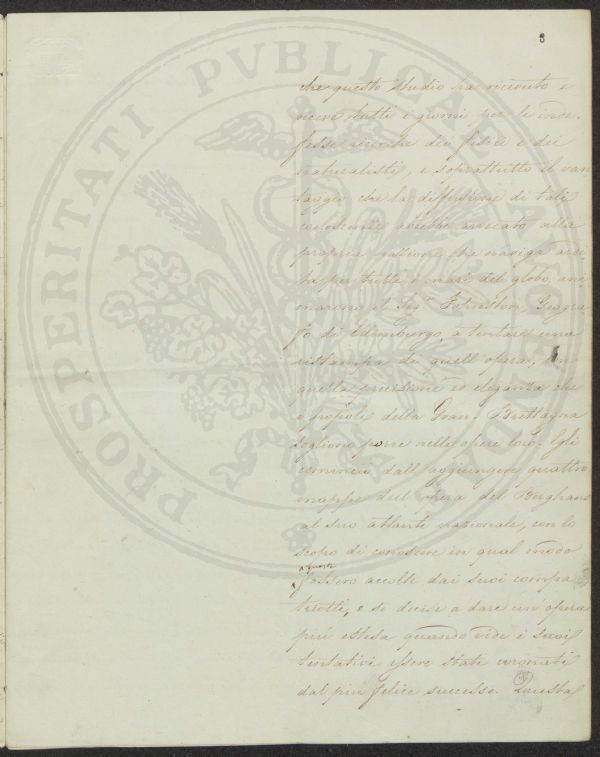 8
PROSPERITATI PVBLICAE AVGENDAE
che questo studio ha ricevuto e
riceve tutti i giorni per le inde-
fesse ricerche dei fisici e dei
naturalisti, e soprattutto il van
taggio che la diffusione di tali
conoscenze avrebbe arrecato alla
propria nazione che naviga ardi
ta per tutti i mari del globo, ani
marono il Sigr. Johnston, Geogra
fo di Edimburgo, a tentare una
ristampa di quell'opera, con
questa precisione ed eleganza che
i popoli della Gran-Brettagna
sogliono porre nelle opere loro. Egli
cominciò dall'aggiungere quattro
mappe dell'opera del Berghaus
al suo atlante nazionale, con lo
scopo di conoscere in qual modo
fossero accolte dai suoi compa
triotti, e si decise a dare un'opera
più estesa quando vide i suoi
tentativi essere stati coronati
dal più felice successo. Questa